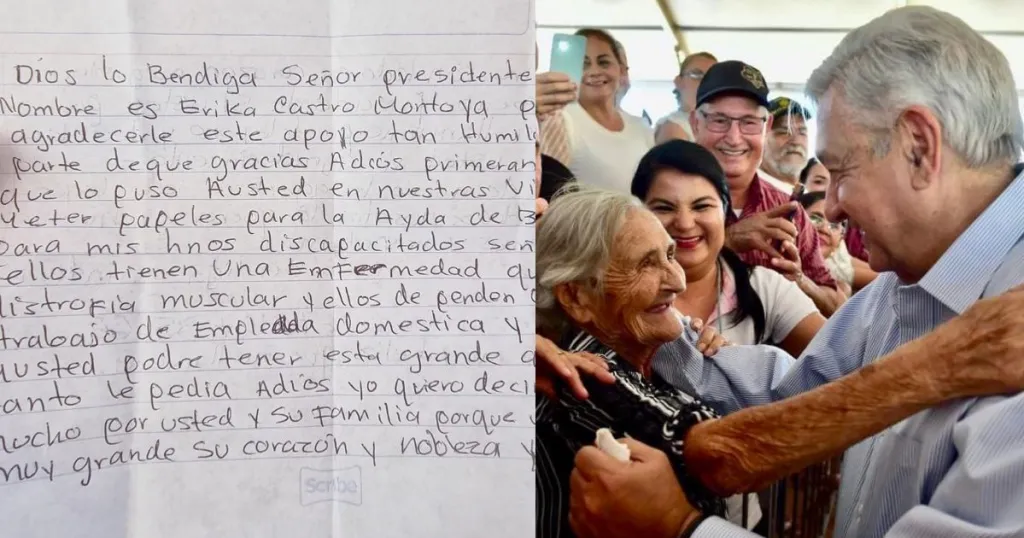 Dios lo Bendiga Señor presidente
Nombre es Erika Castro Montoya p
agradecerle este apoyo tan Humil
parte deque gracias Adiós primeran
que lo puso Austed en nuestras Vi
Meter papeles para la Ayda de B
para mis hnos discapacitados señ
ellos tienen Una Enfermedad qu
distrofia muscular y ellos de penden
trabajo de Empleada domestica y
austed podre tener esta grande a
tanto le pedia Adiós yo quiero deci
mucho por usted y su familia porque
muy grande su corazón y nobleza y
Scribe